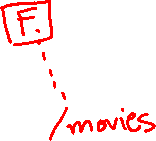 F.
/movies